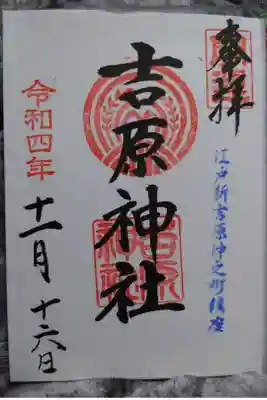 奉拝
江戸新吉原仲之町
吉原神社
令和四年
十一月十六日